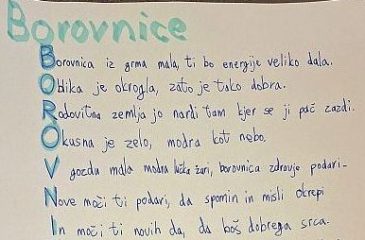 Borovnice
Borovnica iz grma mala, ti bo energije veliko dala.
Oblika je okrogla, zato je tako dobra.
Rodovitna zemlja jo nardi tam kjer se ji pač zazdi.
Okusna je zelo, modra kot nebo.
V gozdu mala modra lučka žari, borovnica zdravje podari.
Nove moči ti podari, da spomin in misli okrepi
In moči ti novih da, da boš dobrega srca.